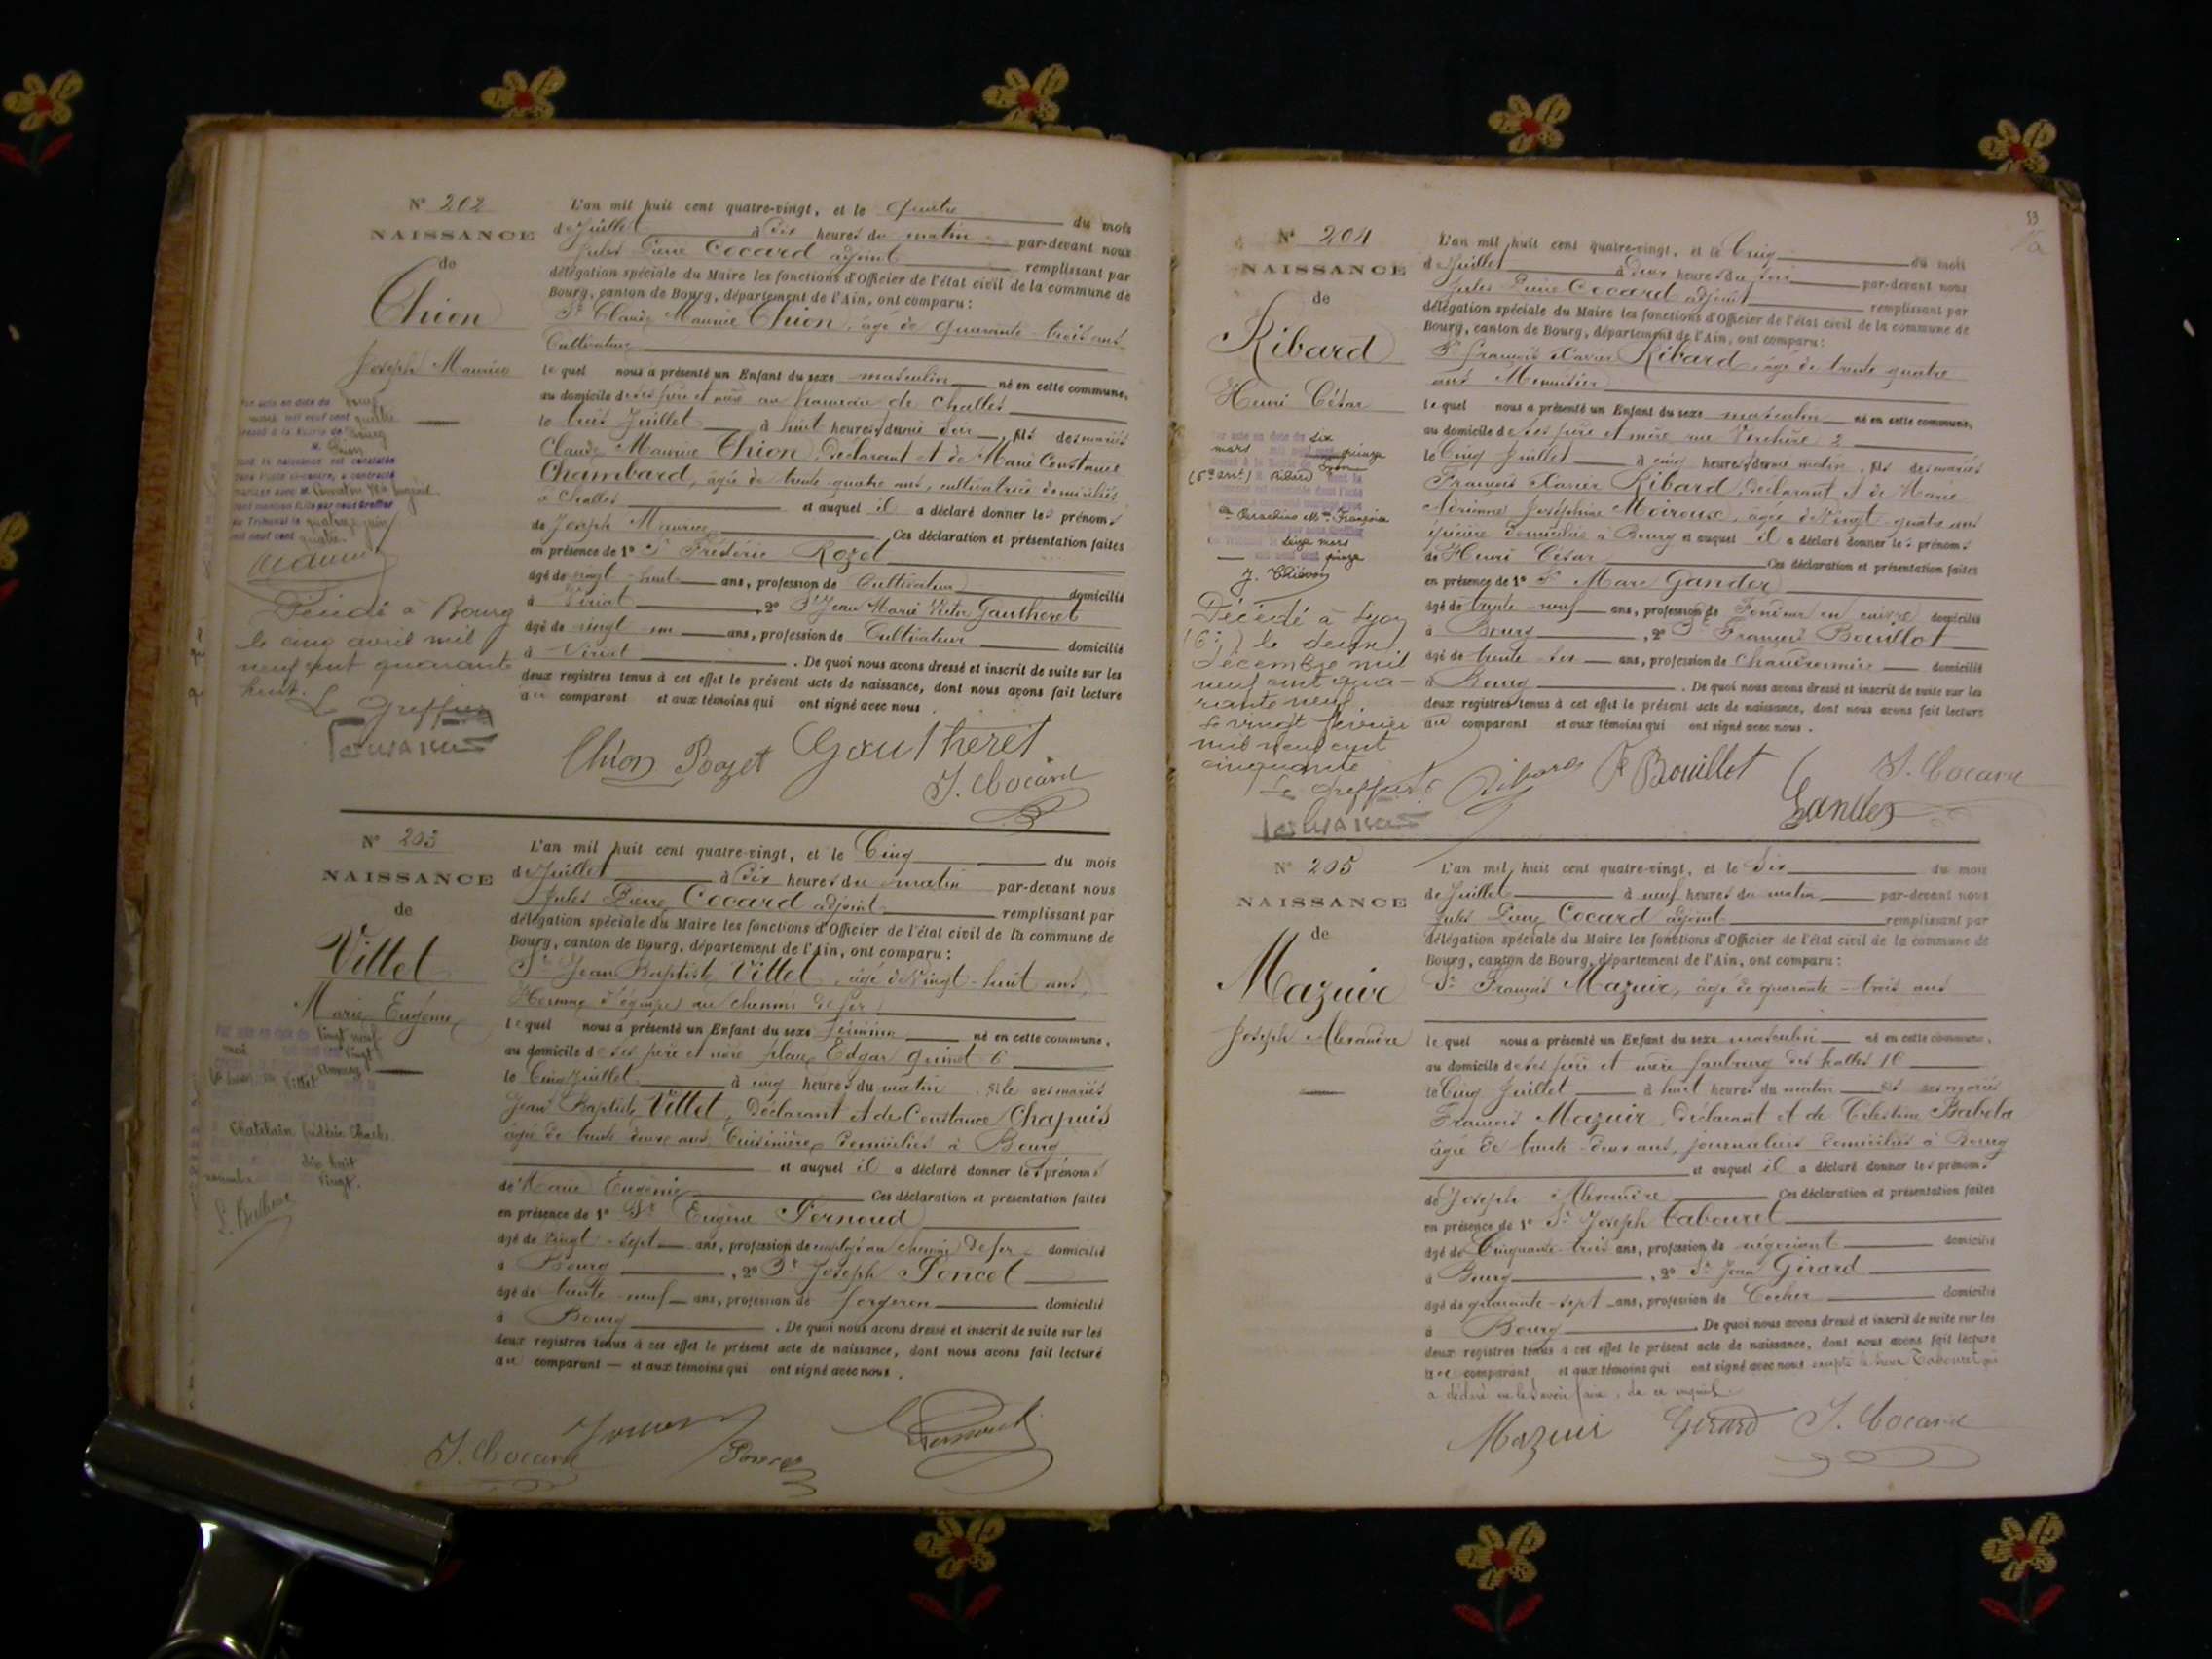 N° 202
NAISSANCE
de
Chion
Joseph Maurice
L'an mil huit cent quatre-vingt, et le quatre du mois
de Juillet à dix heures du matin par-devant nous
Jules Pierre Cocard adjoint remplissant par
délégation spéciale du Maire les fonctions d'Officier de l'état civil de la commune de
Bourg, canton de Bourg, département de l'Ain, ont comparu :
Sr Claude Maurice Chion, âgé de quarante-trois ans
Cultivateur
lequel nous a présenté un Enfant du sexe masculin né en cette commune,
au domicile de ses père et mère au hameau de Challes
le trois Juillet à huit heures du soir, fils des mariés
Claude Maurice Chion, déclarant et de Marie Constance
Chambard, âgée de trente-quatre ans, cultivatrice domiciliés
à Challes et auquel il a déclaré donner les prénoms
de Joseph Maurice Ces déclaration et présentation faites
en présence de 1° Sr Frédéric Rozet
âgé de vingt-huit ans, profession de Cultivateur domicilié
à Viriat, 2° Sr Jean Marie Victor Gautheret
âgé de vingt-un ans, profession de Cultivateur domicilié
à Viriat. De quoi nous avons dressé et inscrit de suite sur les
deux registres tenus à cet effet le présent acte de naissance, dont nous avons fait lecture
au comparant et aux témoins qui ont signé avec nous.
Chion Rozet Gautheret
J. Cocard
Décédé à Bourg
le cinq avril mil
neuf cent quarante
huit.
Le Greffier
N° 203
NAISSANCE
de
Villet
Marie Eugénie
L'an mil huit cent quatre-vingt, et le Cinq du mois
de Juillet à dix heures du matin par-devant nous
Jules Pierre Cocard adjoint remplissant par
délégation spéciale du Maire les fonctions d'Officier de l'état civil de la commune de
Bourg, canton de Bourg, département de l'Ain, ont comparu :
Sr Jean Baptiste Villet, âgé de vingt-huit ans,
Homme d'équipe au chemin de fer
lequel nous a présenté un Enfant du sexe féminin né en cette commune,
au domicile de ses père et mère place Edgar Quinet 6
le Cinq Juillet à cinq heures du matin, fille des mariés
Jean Baptiste Villet, déclarant et de Constance Chapuis
âgée de trente deux ans, Cuisinière, domiciliés à Bourg
et auquel il a déclaré donner les prénoms
de Marie Eugénie Ces déclaration et présentation faites
en présence de 1° Sr Eugène Pernoud
âgé de vingt-sept ans, profession de employé au chemin de fer domicilié
à Bourg, 2° Sr Joseph Poncet
âgé de trente-neuf ans, profession de forgeron domicilié
à Bourg. De quoi nous avons dressé et inscrit de suite sur les
deux registres tenus à cet effet le présent acte de naissance, dont nous avons fait lecture
au comparant — et aux témoins qui ont signé avec nous.
J. Cocard
Chatelain frédéric Charles
dix huit
novembre vingt.
53
N° 204
NAISSANCE
de
Ribard
Henri César
L'an mil huit cent quatre-vingt, et le Cinq du mois
de Juillet à deux heures du soir par-devant nous
Jules Pierre Cocard adjoint remplissant par
délégation spéciale du Maire les fonctions d'Officier de l'état civil de la commune de
Bourg, canton de Bourg, département de l'Ain, ont comparu :
Sr François Xavier Ribard, âgé de trente quatre
ans Menuisier
lequel nous a présenté un Enfant du sexe masculin né en cette commune,
au domicile de ses père et mère rue Verchère 2
le Cinq Juillet à cinq heures du matin, fils des mariés
François Xavier Ribard, déclarant et de Marie
Adrienne Joséphine Moiroux, âgée de vingt-quatre ans
épicière domiciliés à Bourg et auquel il a déclaré donner les prénoms
de Henri César Ces déclaration et présentation faites
en présence de 1° Sr Marc Gander
âgé de trente-neuf ans, profession de Fondeur en cuivre domicilié
à Bourg, 2° Sr François Bouillot
âgé de trente-six ans, profession de chaudronnier domicilié
à Bourg. De quoi nous avons dressé et inscrit de suite sur les
deux registres tenus à cet effet le présent acte de naissance, dont nous avons fait lecture
au comparant et aux témoins qui ont signé avec nous.
Ribard Bouillot J. Cocard
Gander
Décédé à Lyon
(6e) le deux
décembre mil
neuf cent qua-
rante neuf
Le vingt février
mil neuf cent
cinquante
Le Greffier
N° 205
NAISSANCE
de
Mazuir
Joseph Alexandre
L'an mil huit cent quatre-vingt, et le Six du mois
de Juillet à neuf heures du matin par-devant nous
Jules Pierre Cocard adjoint remplissant par
délégation spéciale du Maire les fonctions d'Officier de l'état civil de la commune de
Bourg, canton de Bourg, département de l'Ain, ont comparu :
Sr François Mazuir, âgé de quarante-trois ans
lequel nous a présenté un Enfant du sexe masculin né en cette commune,
au domicile de ses père et mère faubourg des halles 10
le Cinq Juillet à huit heures du matin fils des mariés
François Mazuir, déclarant et de Célestine
âgée de trente-deux ans, journaliers domiciliés à Bourg
et auquel il a déclaré donner les prénoms
de Joseph Alexandre Ces déclaration et présentation faites
en présence de 1° Sr Joseph Tabouret
âgé de Cinquante-trois ans, profession de négociant domicilié
à Bourg, 2° Sr Jean Girard
âgé de quarante-sept ans, profession de Cocher domicilié
à Bourg. De quoi nous avons dressé et inscrit de suite sur les
deux registres tenus à cet effet le présent acte de naissance, dont nous avons fait lecture
comparant et aux témoins qui ont signé avec nous excepté le sieur Tabouret qui
a déclaré ne le savoir faire, de ce enquis.
Mazuir Girard J. Cocard